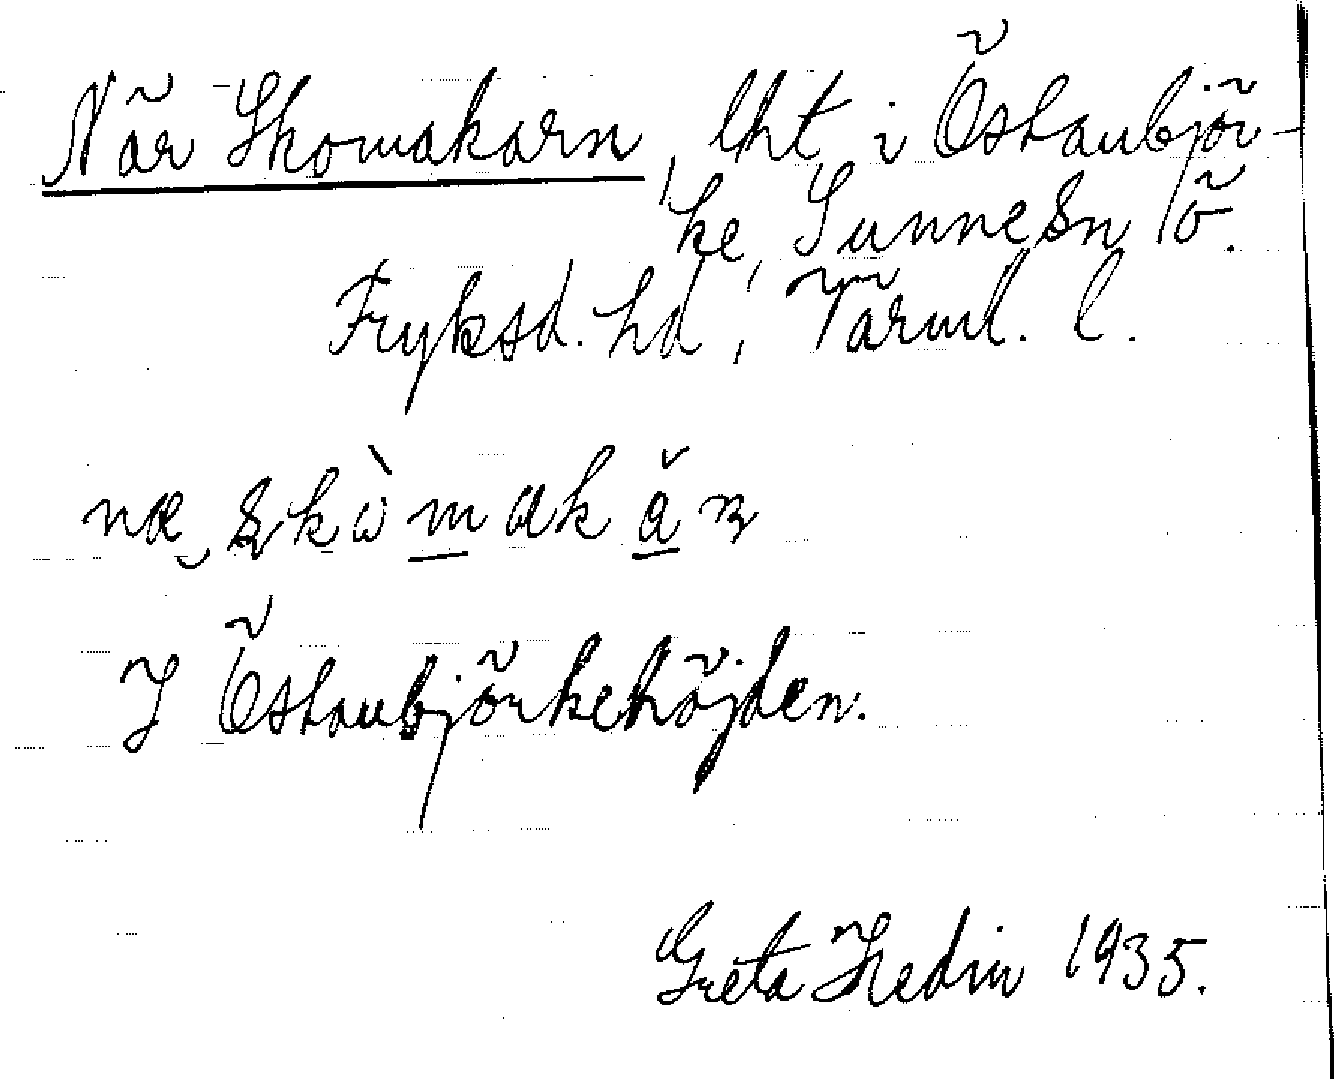 När Skomakarn, lht i Östanbjör-
ke, Sunne sn, ö.
Fryksd. hd, Värml. l.
næ skòmakăn
I Östanbjörkehöjden.
Greta Hedin 1935.